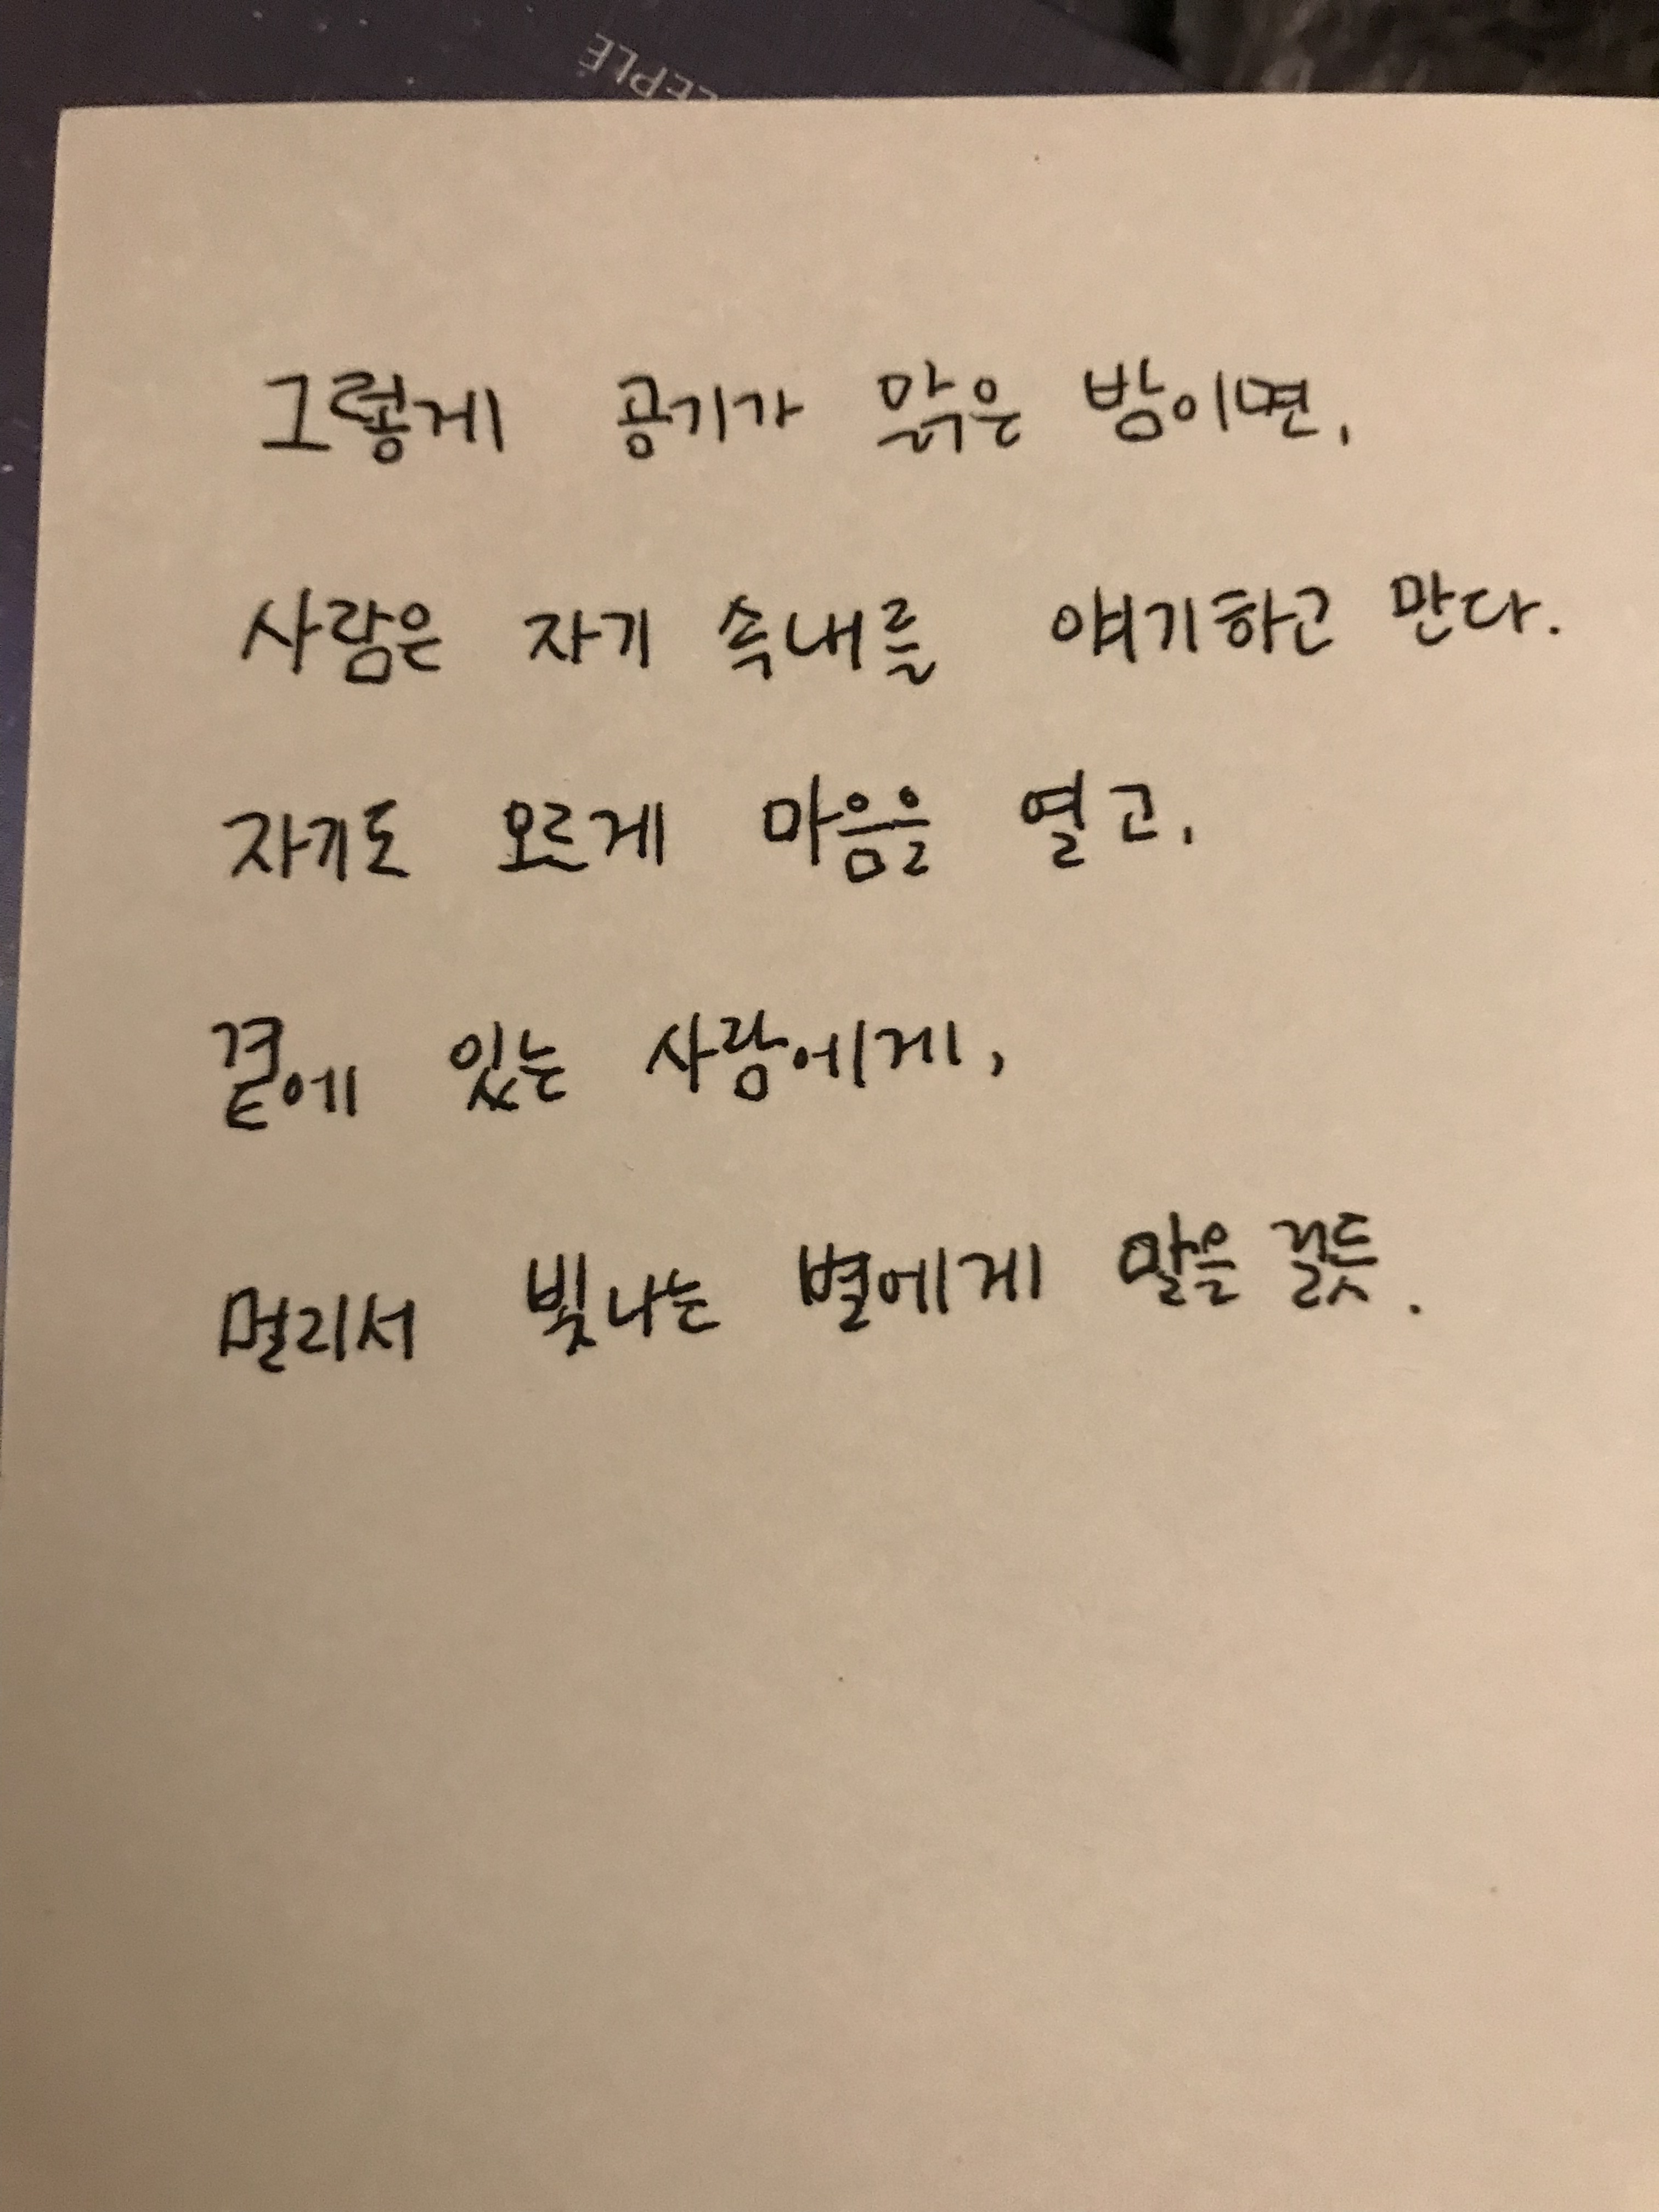 그렇게 공기가 맑은 밤이면,
사람은 자기 속내를 얘기하고 만다.
자기도 모르게 마음을 열고,
곁에 있는 사람에게,
멀리서 빛나는 별에게 말을 걸듯.